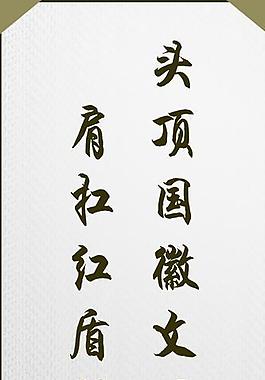 头顶国徽文
肩扛红盾